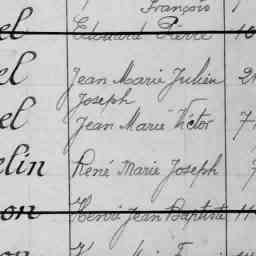 François
el Edouard Pierre 10
el Jean Marie Julien 2
Joseph
el Jean Marie Victor 7
elin René Marie Joseph 7
on Henri Jean Baptiste 11